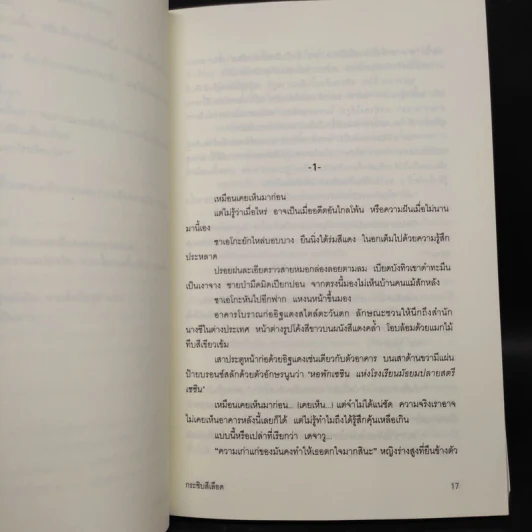 -1-
เหมือนเคยเห็นมาก่อน
แต่ไม่รู้ว่าเมื่อไหร่ อาจเป็นเมื่ออดีตอันไกลโพ้น หรือความฝันเมื่อไม่นาน
มานี้เอง
ซาเอโกะยักไหล่บอบบาง ยืนนิ่งใต้ร่มสีแดง ในอกเต็มไปด้วยความรู้สึก
ประหลาด
ปรอยฝนละเอียดราวสายหมอกล่องลอยตามลม เบียดบังทิวเขาดำทะมึน
เป็นเงาจาง ชายป่ามืดมิดเปียกปอน จากตรงนี้มองไม่เห็นบ้านคนแม้สักหลัง
ซาเอโกะหันไปอีกฟาก แหงนหน้าขึ้นมอง
อาคารโบราณก่ออิฐแดงสไตล์ตะวันตก ลักษณะชวนให้นึกถึงสำนัก
นางชีในต่างประเทศ หน้าต่างรูปโค้งสีขาวบนผนังสีแดงคล้ำ โอบล้อมด้วยแมกไม้
ทึบสีเขียวเข้ม
เสาประตูหน้าก่อด้วยอิฐแดงเช่นเดียวกับตัวอาคาร บนเสาด้านขวามีแผ่น
ป้ายบรอนซ์สลักด้วยตัวอักษรนูนว่า "หอพักเซชิน แห่งโรงเรียนมัธยมปลายสตรี
เซชิน"
เหมือนเคยเห็นมาก่อน... (เคยเห็น...) แต่จำไม่ได้แน่ชัด ความจริงเราอาจ
ไม่เคยเห็นอาคารหลังนี้เลยก็ได้ แต่ไม่รู้ทำไมถึงได้รู้สึกคุ้นเหลือเกิน
แบบนี้หรือเปล่าที่เรียกว่า เดจาวู...
"ความเก่าแก่ของมันคงทำให้เธอตกใจมากสินะ" หญิงร่างสูงที่ยืนข้างตัว
กระซิบสีเลือด
17